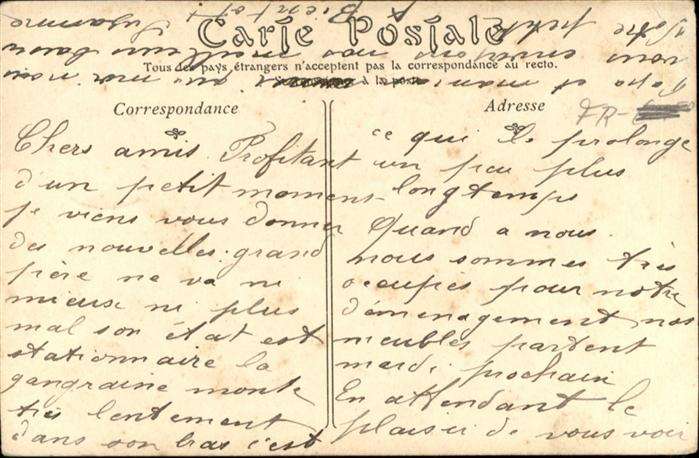 Carte Postale
Tous des pays étrangers n'acceptent pas la correspondance au recto.
à la poste
Correspondance
Chers amis Profitant
d'un petit moment
je viens vous donner
des nouvelles. grand
père ne va ni
mieux ni plus
mal son état est
stationnaire la
gangraine monte
très lentement
dans son bras c'est
Adresse
FR-
ce qui le prolonge
un peu plus
longtemps
Quand a nous
nous sommes très
occupés pour notre
déménagement nos
meubles partent
mardi prochain
En attendant le
plaisir de vous voir
Papa et maman
vous
Votre petite
Suzanne